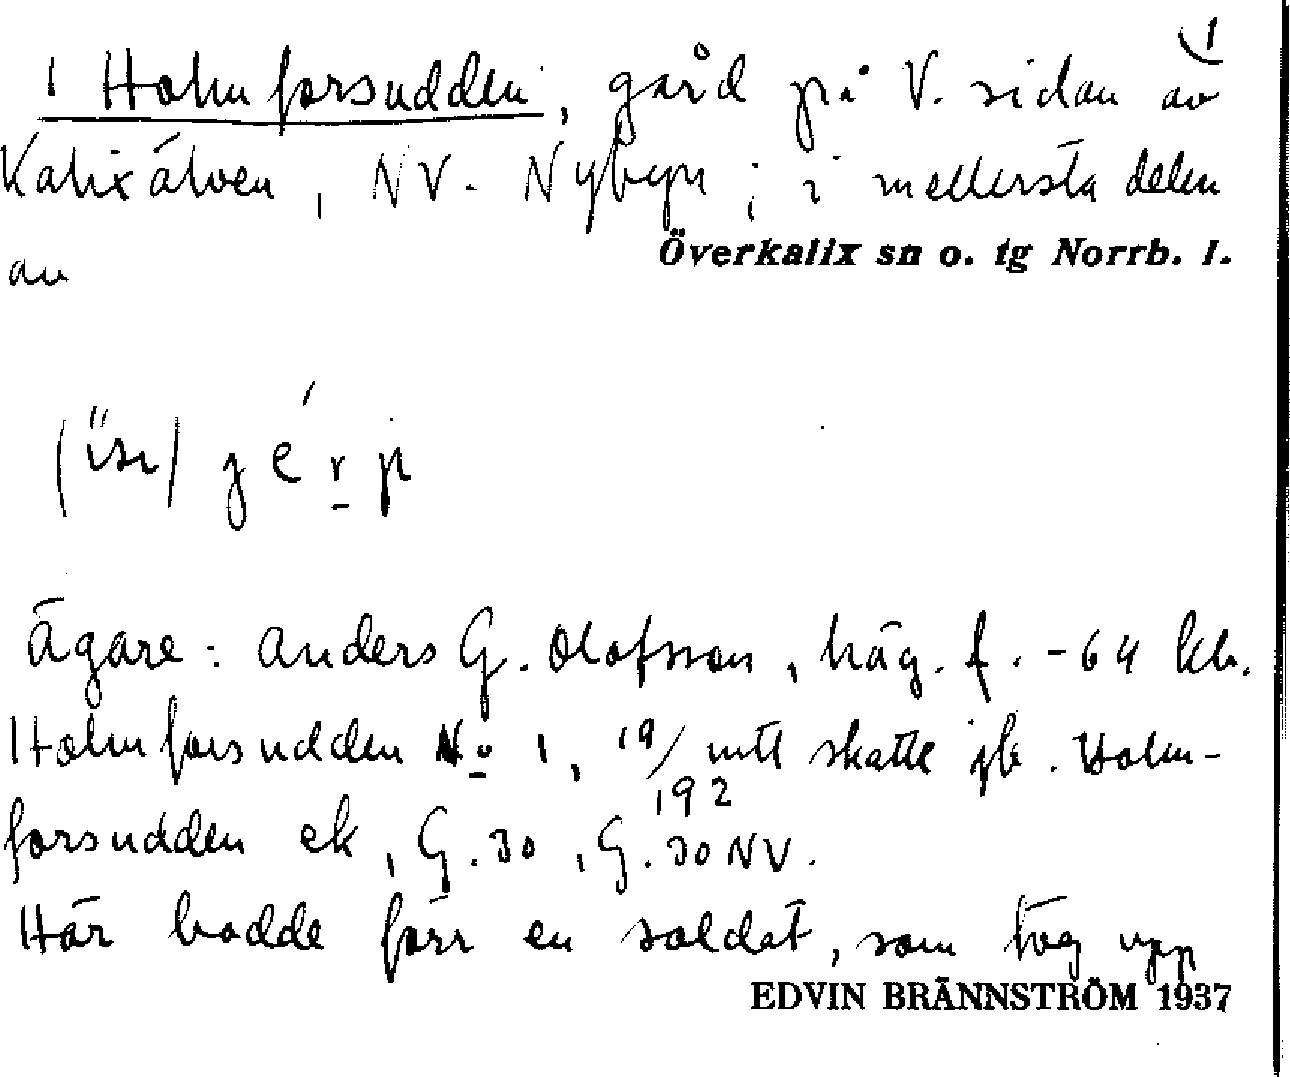 1
1 Holmforsudden, gård på V. sidan av
Kalixälven, NV. Nybyn; i mellersta delen
av Överkalix sn o. tg Norrb. l.
Ägare: Anders G. Olofsson, häg. f. -64 kb.
Holmforsudden No 1, 19/192 mtl skatte jb. Holm-
forsudden ek, G. 30, G. 30 NV.
Här bodde förr en soldat, som tog upp
EDVIN BRÄNNSTRÖM 1937